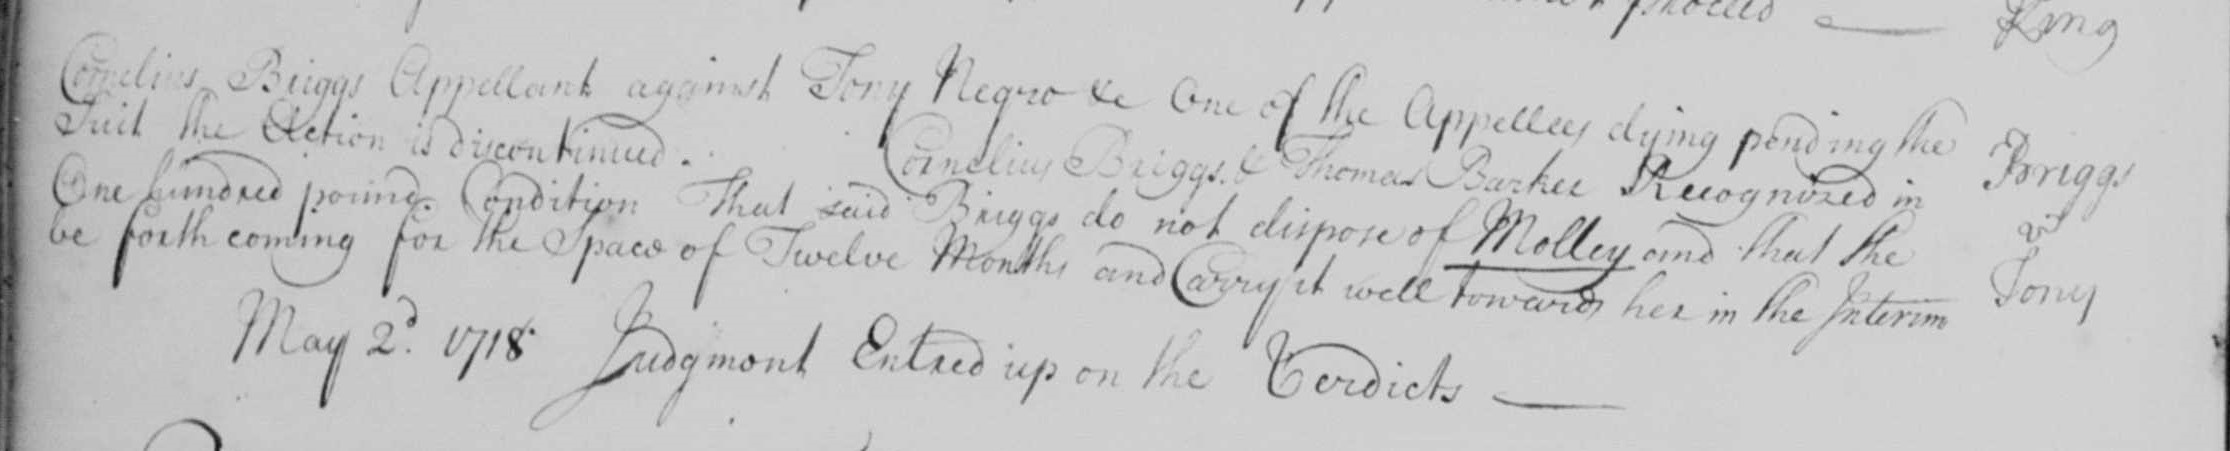 proceed King
Cornelius Briggs Appellant against Tony Negro &c One of the Appellees dying pending the
Suit the Action is discontinued. Cornelius Briggs & Thomas Barker Recognized in Briggs
One hundred pound. Condition That said Briggs do not dispose of Molley and that she vs
be forthcoming for the Space of Twelve Months and Carry it well towards her in the Interim Tony
May 2d. 1718 Judgment Entred up on the Verdicts